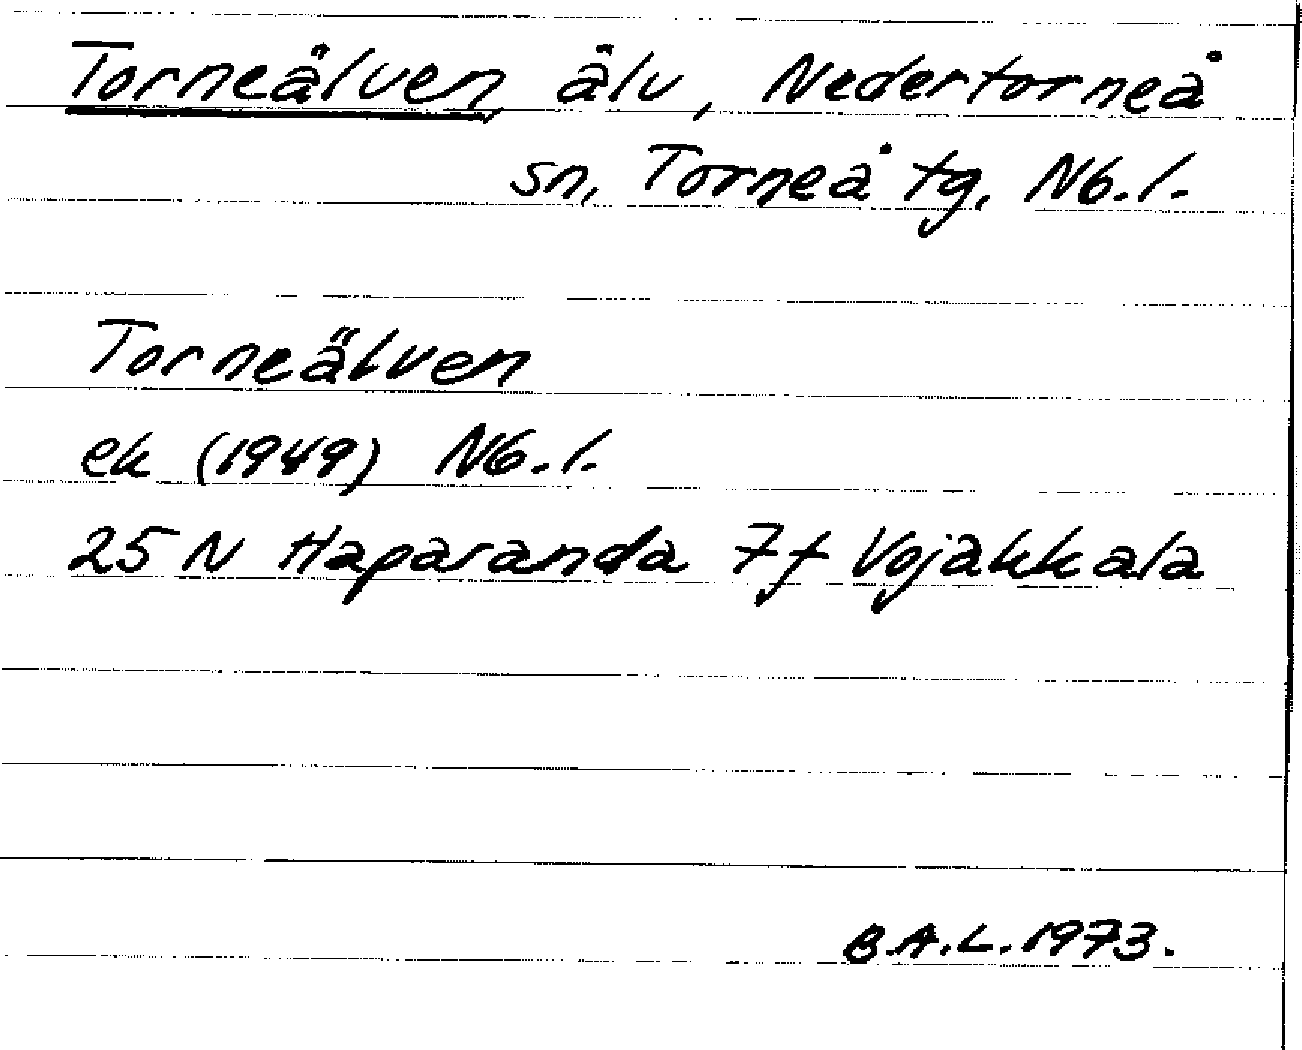 Torneälven, älv, Nedertorneå
sn, Torneå tg, Nb.l.
Torneälven
ek (1949) Nb.l.
25 N Haparanda 7f Vojakkala
B.A.L. 1973.